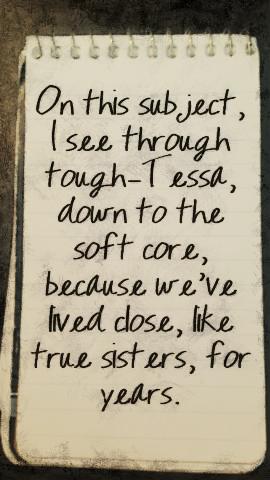 On this subject,
I see through
tough-Tessa,
down to the
soft core,
because we've
lived close, like
true sisters, for
years.